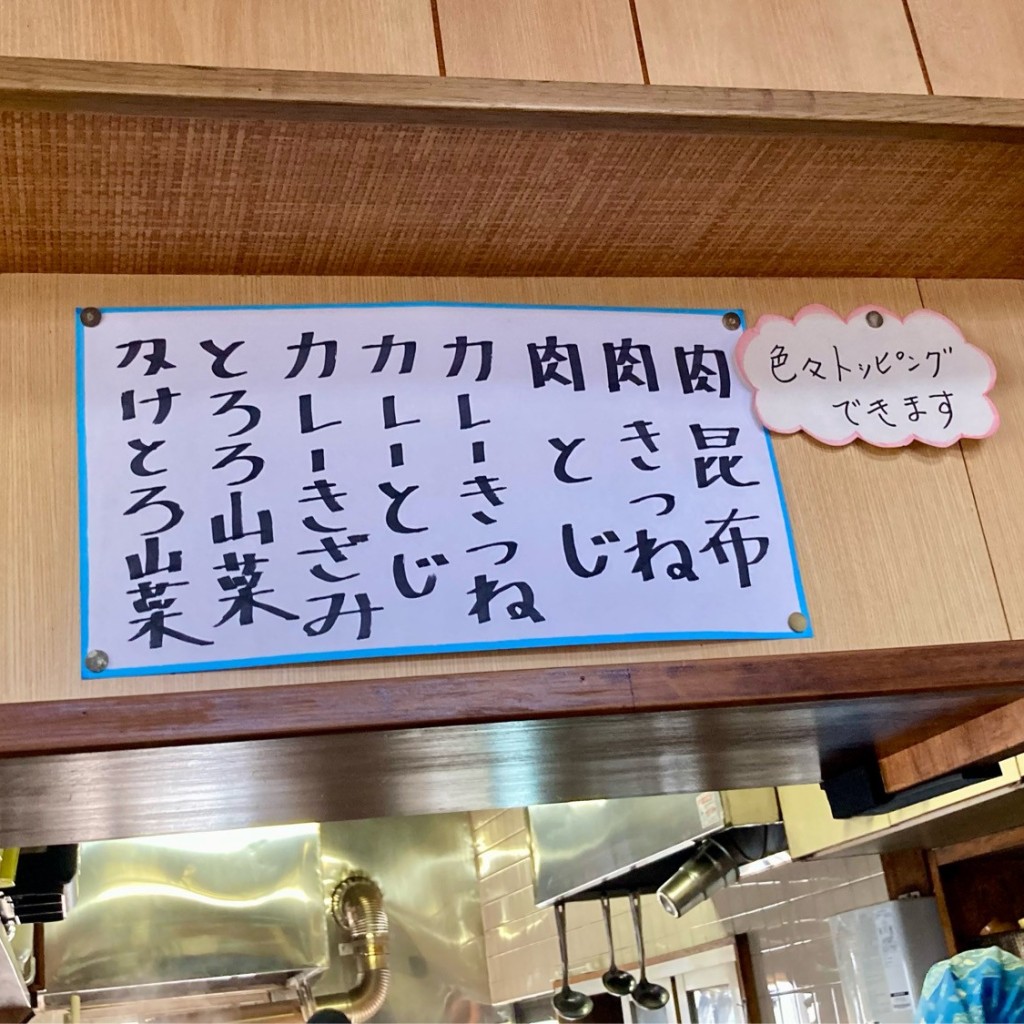 肉昆布
肉きつね
肉とじ
カレーきつね
カレーとじ
カレーきざみ
とろろ山菜
ぶっかけとろ山菜
色々トッピング
できます